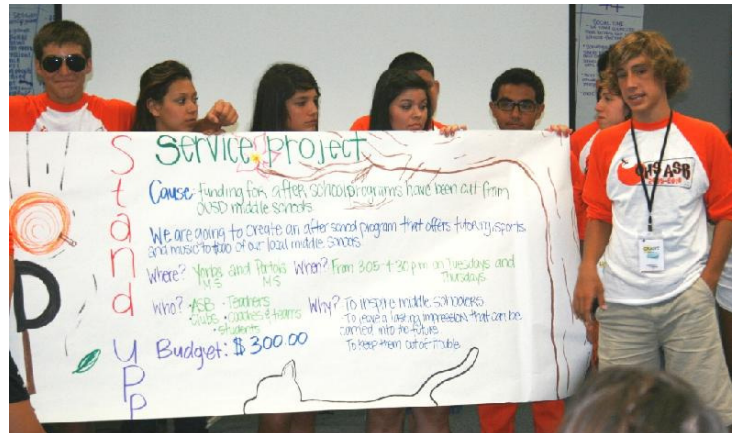 Stand UPP
Service project
Cause: Funding for after school programs have been cut from
OUSD middle schools.
We are going to create an after school program that offers tutoring, sports,
and music to two of our local middle schools.
Where? Yorba and Portola When? From 3:05-4:30 pm on Tuesdays and
M.S M.S Thursdays
Who? • ASB • Teachers Why? To inspire middle schoolers
• Clubs • coaches & teams - To leave a lasting impression that can be
• students carried into the future
Budget: $300.00 To keep them out of trouble
OHS ASB